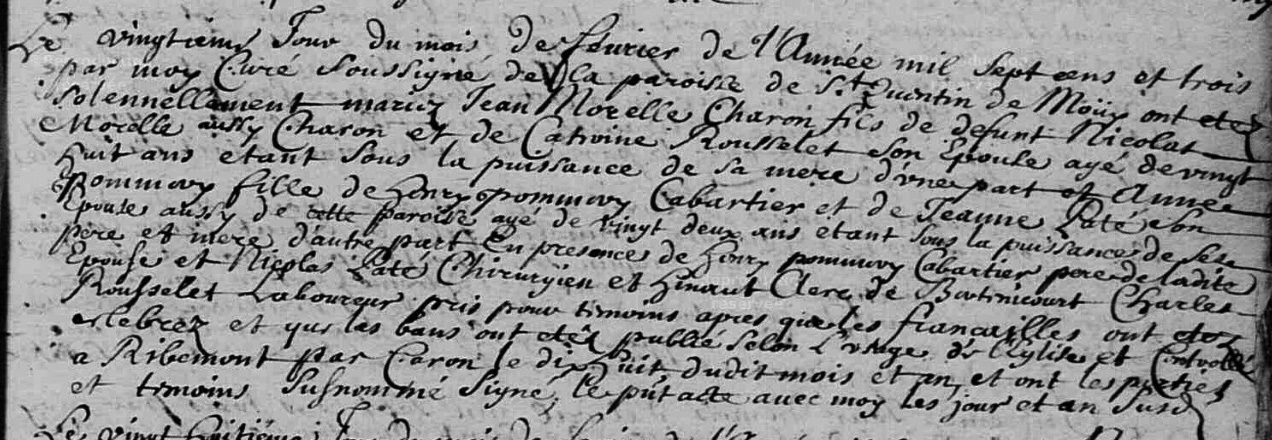 Le vingtieme Jour du mois de fevrier de l'Année mil sept cens et trois
par moy Curé soussigné de la paroisse de St Quentin de Moüy ont etez
solennellement mariez Jean Morelle Charon fils de defunt Nicolas
Morelle aussy Charon et de Catroine Rousselet son Epouse agé de vingt
huit ans etant sous la puissance de sa mere d'une part et Année
pommery fille de henry pommery Cabartier et de Jeanne Laté son
Epouse aussy de cette paroisse agé de vingt deux ans etant sous la puissance de ses
pere et mere d'autre part En presences de henry pommery Cabartier pere de ladite
Epouse et Nicolas Laté Chirurgien et hinaut Clerc de Charles
Rousselet Laboureur pris pour temoins apres que les fiancailles ont etez
celebrez et que les bans ont etez publié selon l'usage de l'Eglise et Controllé
a Ribemont par Caron le dix huit dudit mois et an, et ont les parties
et temoins susnommé signé le pnt acte avec moy les jour et an susd
Le vingt huitieme Jour du mois de de l'Année